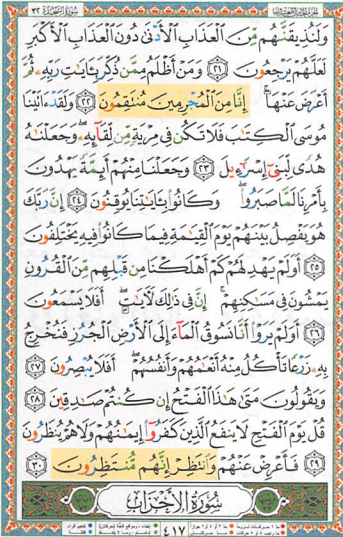 سُورَةُ السَّجْدَةِ ٣٢
وَلَنُذِيقَنَّهُم مِّنَ الْعَذَابِ الْأَدْنَىٰ دُونَ الْعَذَابِ الْأَكْبَرِ
لَعَلَّهُمْ يَرْجِعُونَ ٢١ وَمَنْ أَظْلَمُ مِمَّن ذُكِّرَ بِـَٔايَٰتِ رَبِّهِۦ ثُمَّ
أَعْرَضَ عَنْهَآ إِنَّا مِنَ الْمُجْرِمِينَ مُنتَقِمُونَ ٢٢ وَلَقَدْ ءَاتَيْنَا
مُوسَى الْكِتَٰبَ فَلَا تَكُن فِى مِرْيَةٍ مِّن لِّقَآئِهِۦ وَجَعَلْنَٰهُ
هُدًى لِّبَنِىٓ إِسْرَٰٓءِيلَ ٢٣ وَجَعَلْنَا مِنْهُمْ أَئِمَّةً يَهْدُونَ
بِأَمْرِنَا لَمَّا صَبَرُوا۟ وَكَانُوا۟ بِـَٔايَٰتِنَا يُوقِنُونَ ٢٤ إِنَّ رَبَّكَ
هُوَ يَفْصِلُ بَيْنَهُمْ يَوْمَ الْقِيَٰمَةِ فِيمَا كَانُوا۟ فِيهِ يَخْتَلِفُونَ
٢٥ أَوَلَمْ يَهْدِ لَهُمْ كَمْ أَهْلَكْنَا مِن قَبْلِهِم مِّنَ الْقُرُونِ
يَمْشُونَ فِى مَسَٰكِنِهِمْ إِنَّ فِى ذَٰلِكَ لَـَٔايَٰتٍ أَفَلَا يَسْمَعُونَ
٢٦ أَوَلَمْ يَرَوْا۟ أَنَّا نَسُوقُ الْمَآءَ إِلَى الْأَرْضِ الْجُرُزِ فَنُخْرِجُ
بِهِۦ زَرْعًا تَأْكُلُ مِنْهُ أَنْعَٰمُهُمْ وَأَنفُسُهُمْ أَفَلَا يُبْصِرُونَ ٢٧
وَيَقُولُونَ مَتَىٰ هَٰذَا الْفَتْحُ إِن كُنتُمْ صَٰدِقِينَ ٢٨
قُلْ يَوْمَ الْفَتْحِ لَا يَنفَعُ الَّذِينَ كَفَرُوٓا۟ إِيمَٰنُهُمْ وَلَا هُمْ يُنظَرُونَ
٢٩ فَأَعْرِضْ عَنْهُمْ وَانتَظِرْ إِنَّهُم مُّنتَظِرُونَ ٣٠
سُورَةُ الْأَحْزَابِ
٤١٧